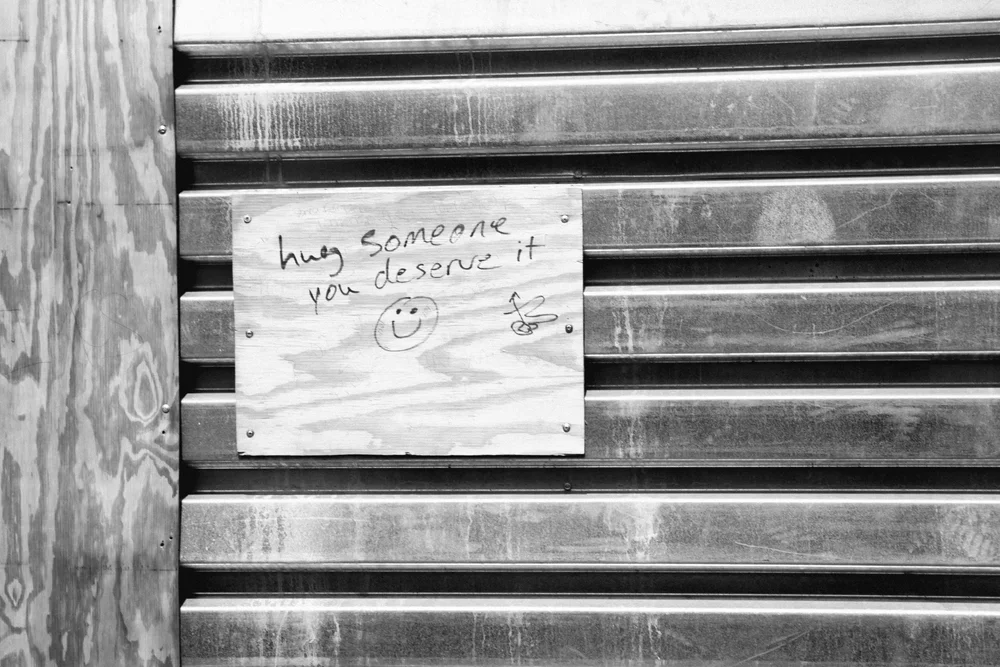 hug someone
you deserve it